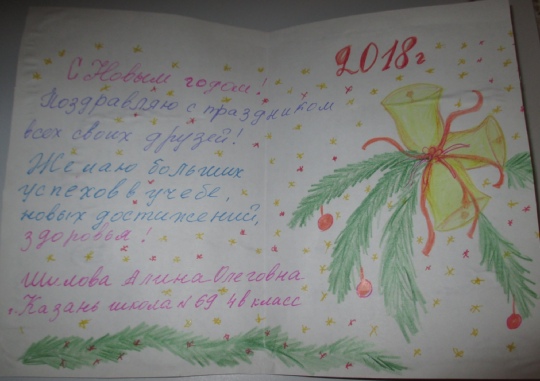 С Новым годом!
Поздравляю с праздником
всех своих друзей!
Желаю больших
успехов в учебе,
новых достижений,
здоровья!
Шилова Алина Олеговна
Казань школа №69 4в класс
2018г